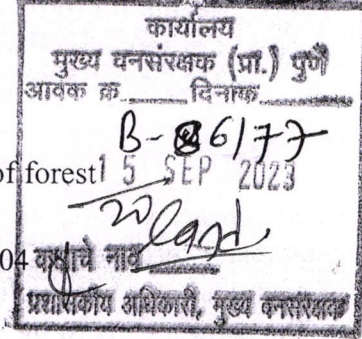 कार्यालय
मुख्य वनसंरक्षक (प्रा.) पुणे
आवक क्र. दिनांक
of forest 15 SEP 2023
04 नाव
प्रशासकीय अधिकारी, मुख्य वनसंरक्षक